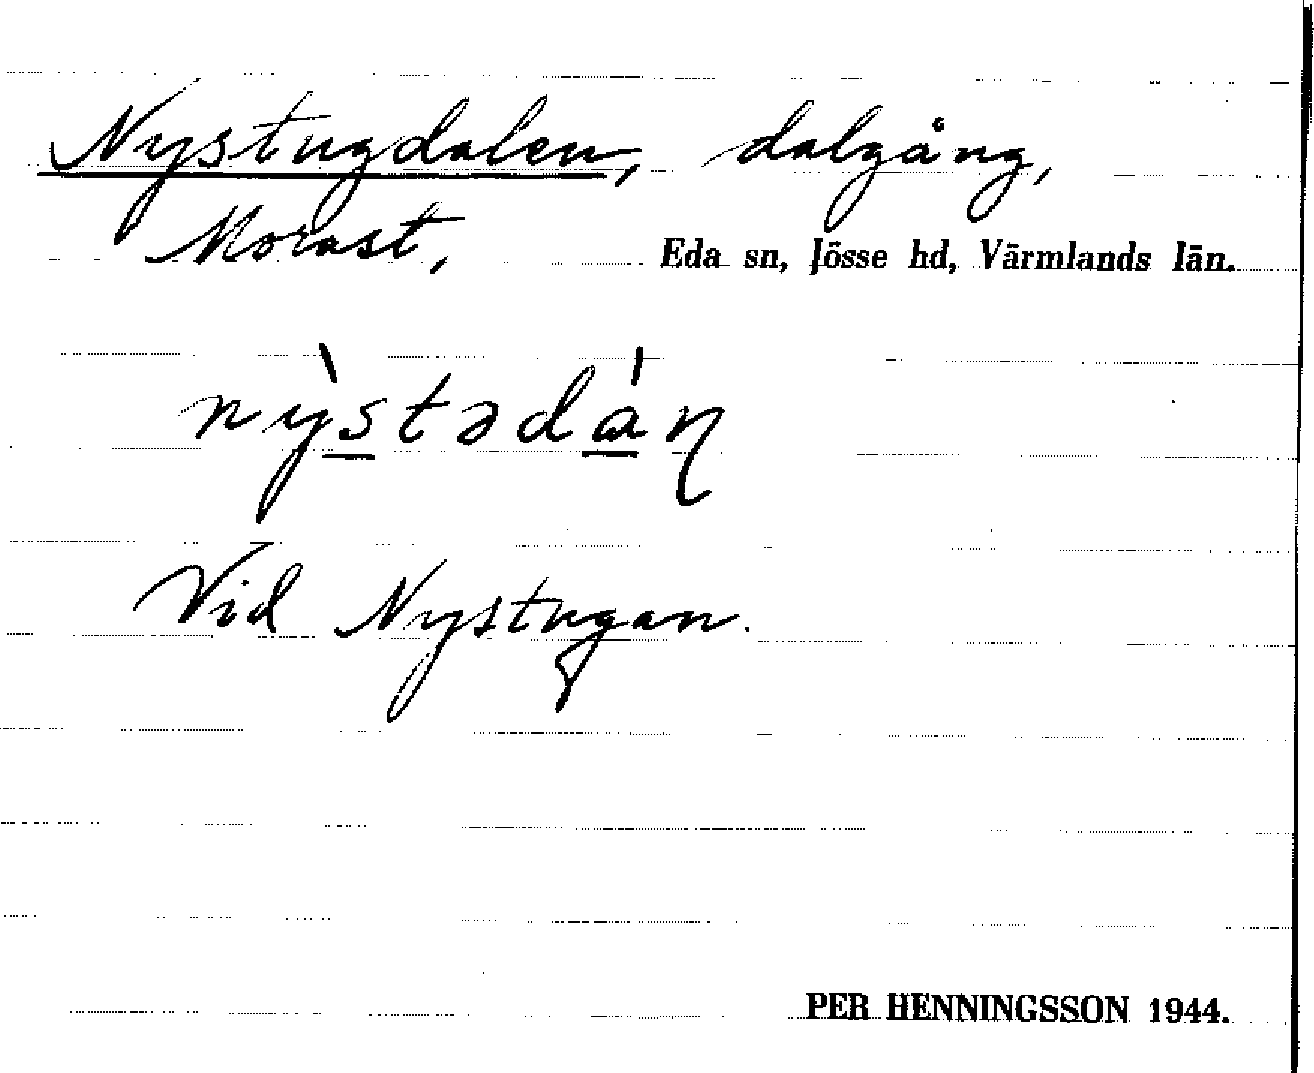 Nystugdalen, dalgång,
Morast, Eda sn, Jösse hd, Värmlands län.
nỳstədán
Vid Nystugan.
PER HENNINGSSON 1944.